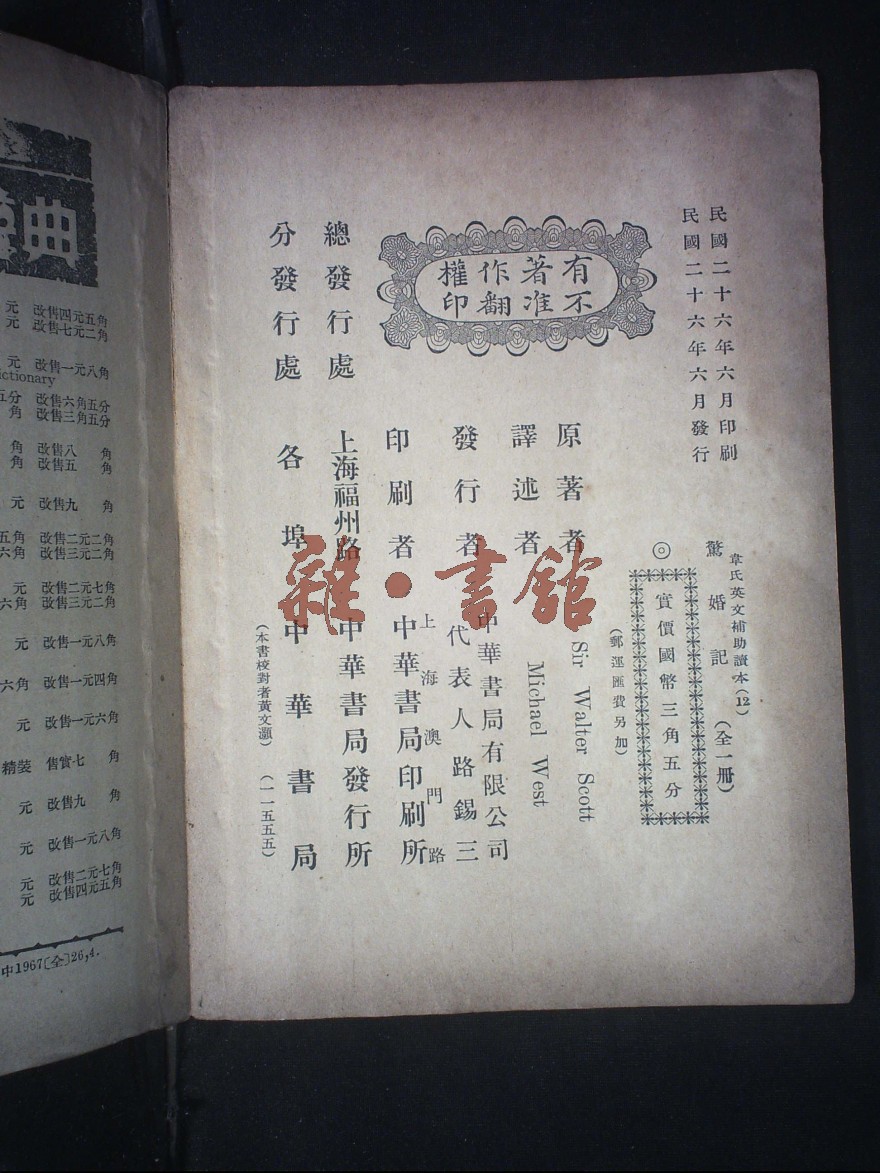 民國二十六年六月印刷
民國二十六年六月發行
韋氏英文補助讀本(12)
驚婚記(全一冊)
◎實價國幣三角五分
(郵運匯費另加)
有著作權
不准翻印
原著者 Sir Walter Scott
譯述者 Michael West
發行者 中華書局有限公司
代表人路錫三
印刷者 上海澳門路
中華書局印刷所
總發行處 上海福州路 中華書局發行所
分發行處 各埠中華書局
(本書校對者黃文灝)(一一五五五)
雜·書館
典
元 改售四元五角
元 改售七元二角
元 改售一元八角
ictionary
五分 改售六角五分
角 改售三角五分
角 改售八角
角 改售五角
元 改售九角
五角 改售二元二角
六角 改售三元二角
元 改售二元七角
六角 改售三元二角
元 改售一元八角
六角 改售一元四角
元 改售一元六角
精裝 售實七角
元 改售九角
元 改售一元八角
元 改售二元七角
元 改售四元五角
中1967〔全〕26,4.